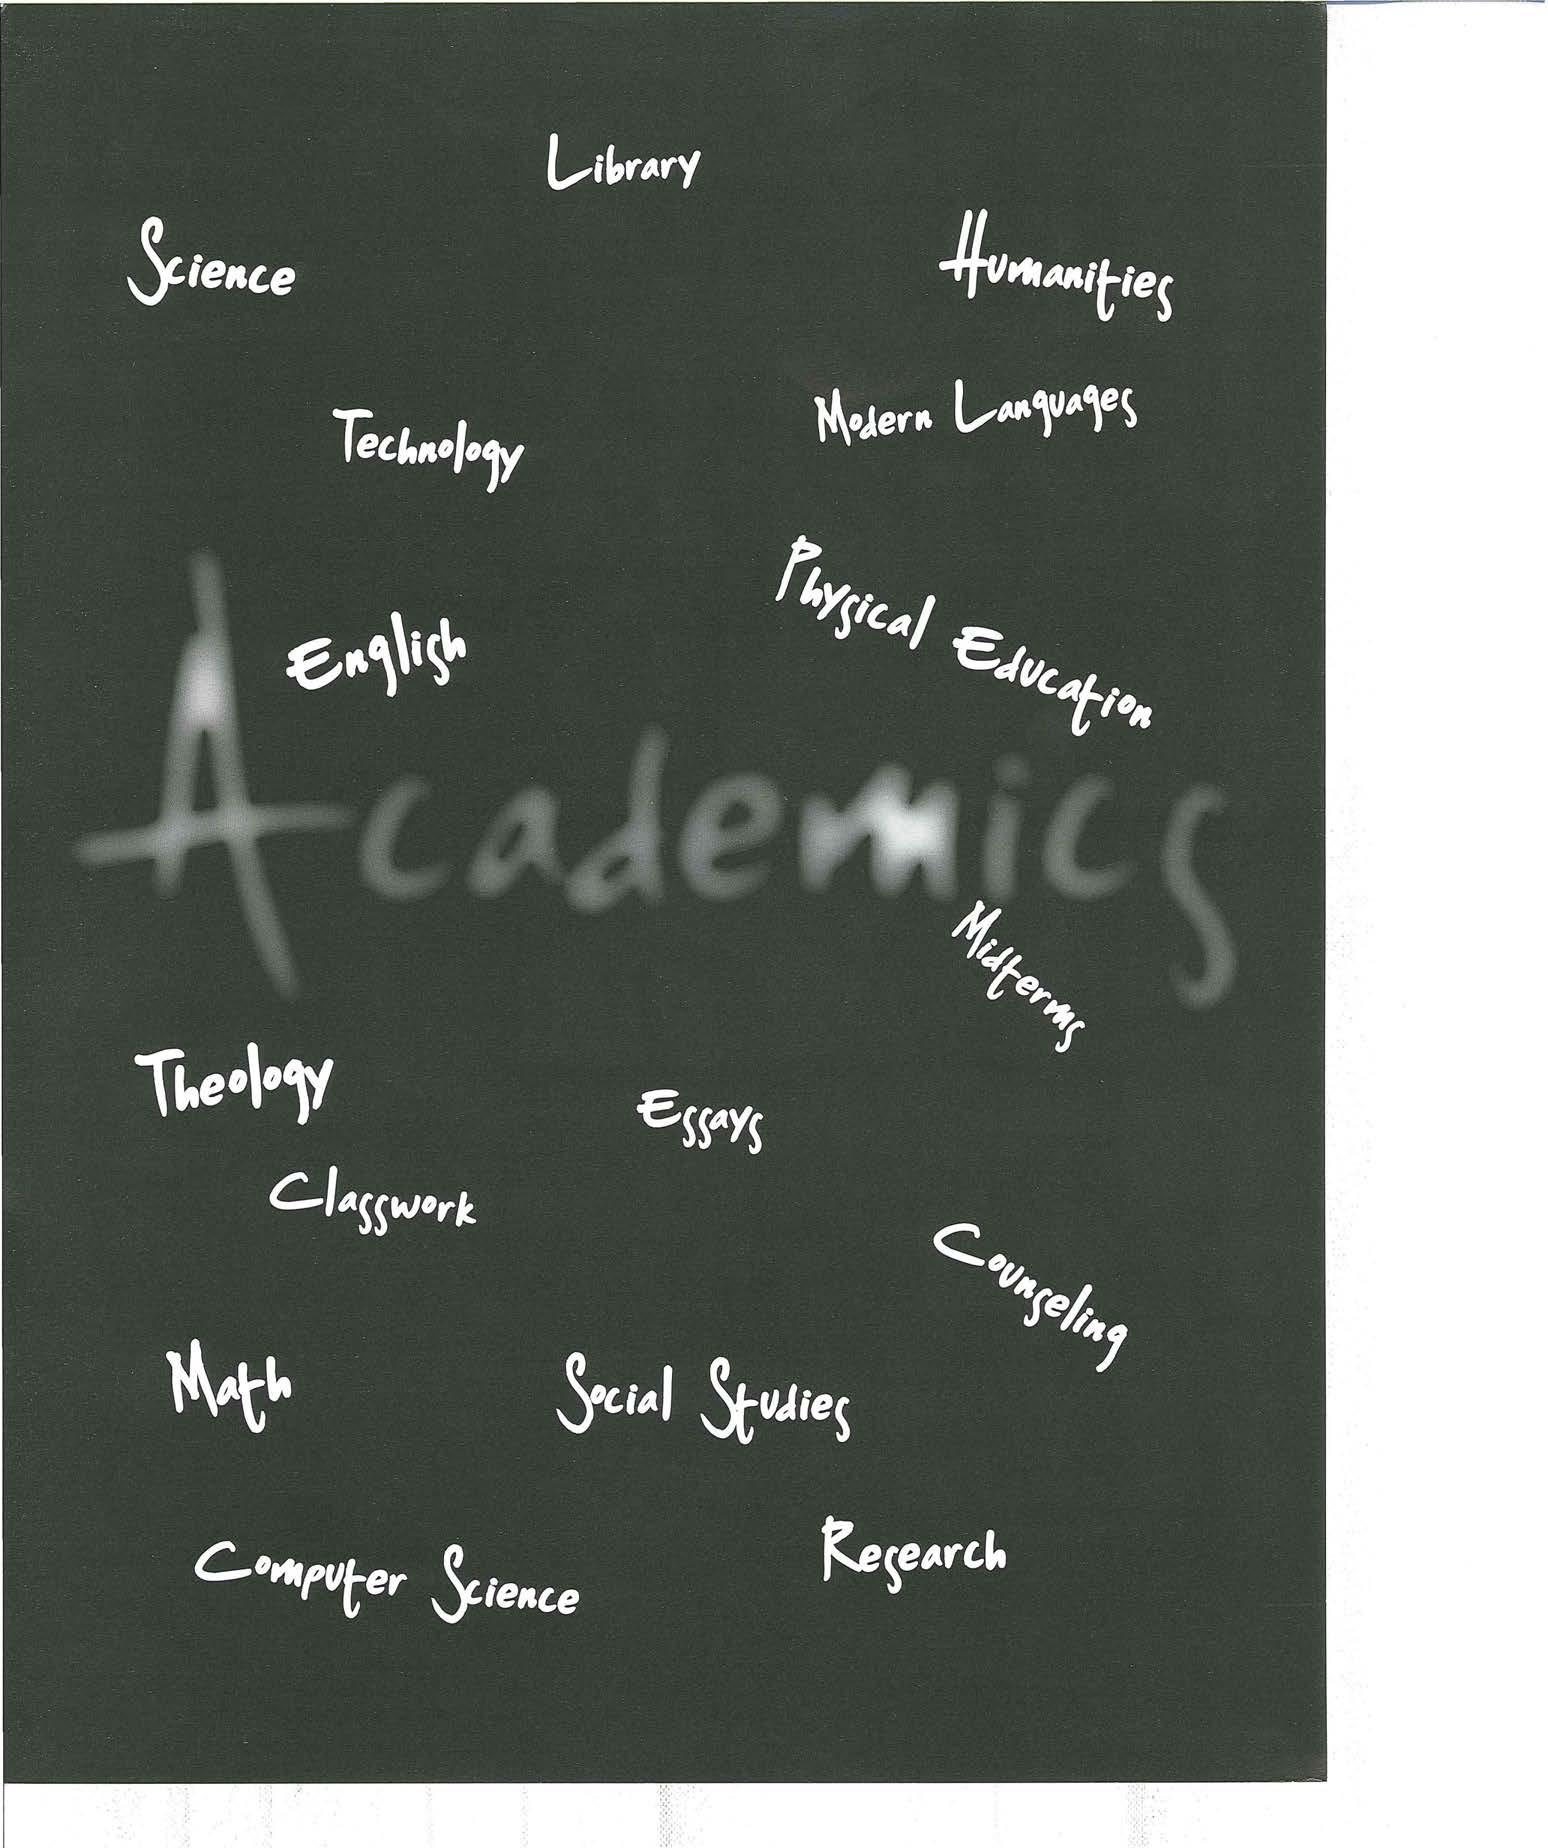 Library
Science
Humanities
Modern Languages
Technology
Physical Education
English
Academics
Midterms
Theology
Essays
Classwork
Counseling
Math
Social Studies
Research
Computer Science